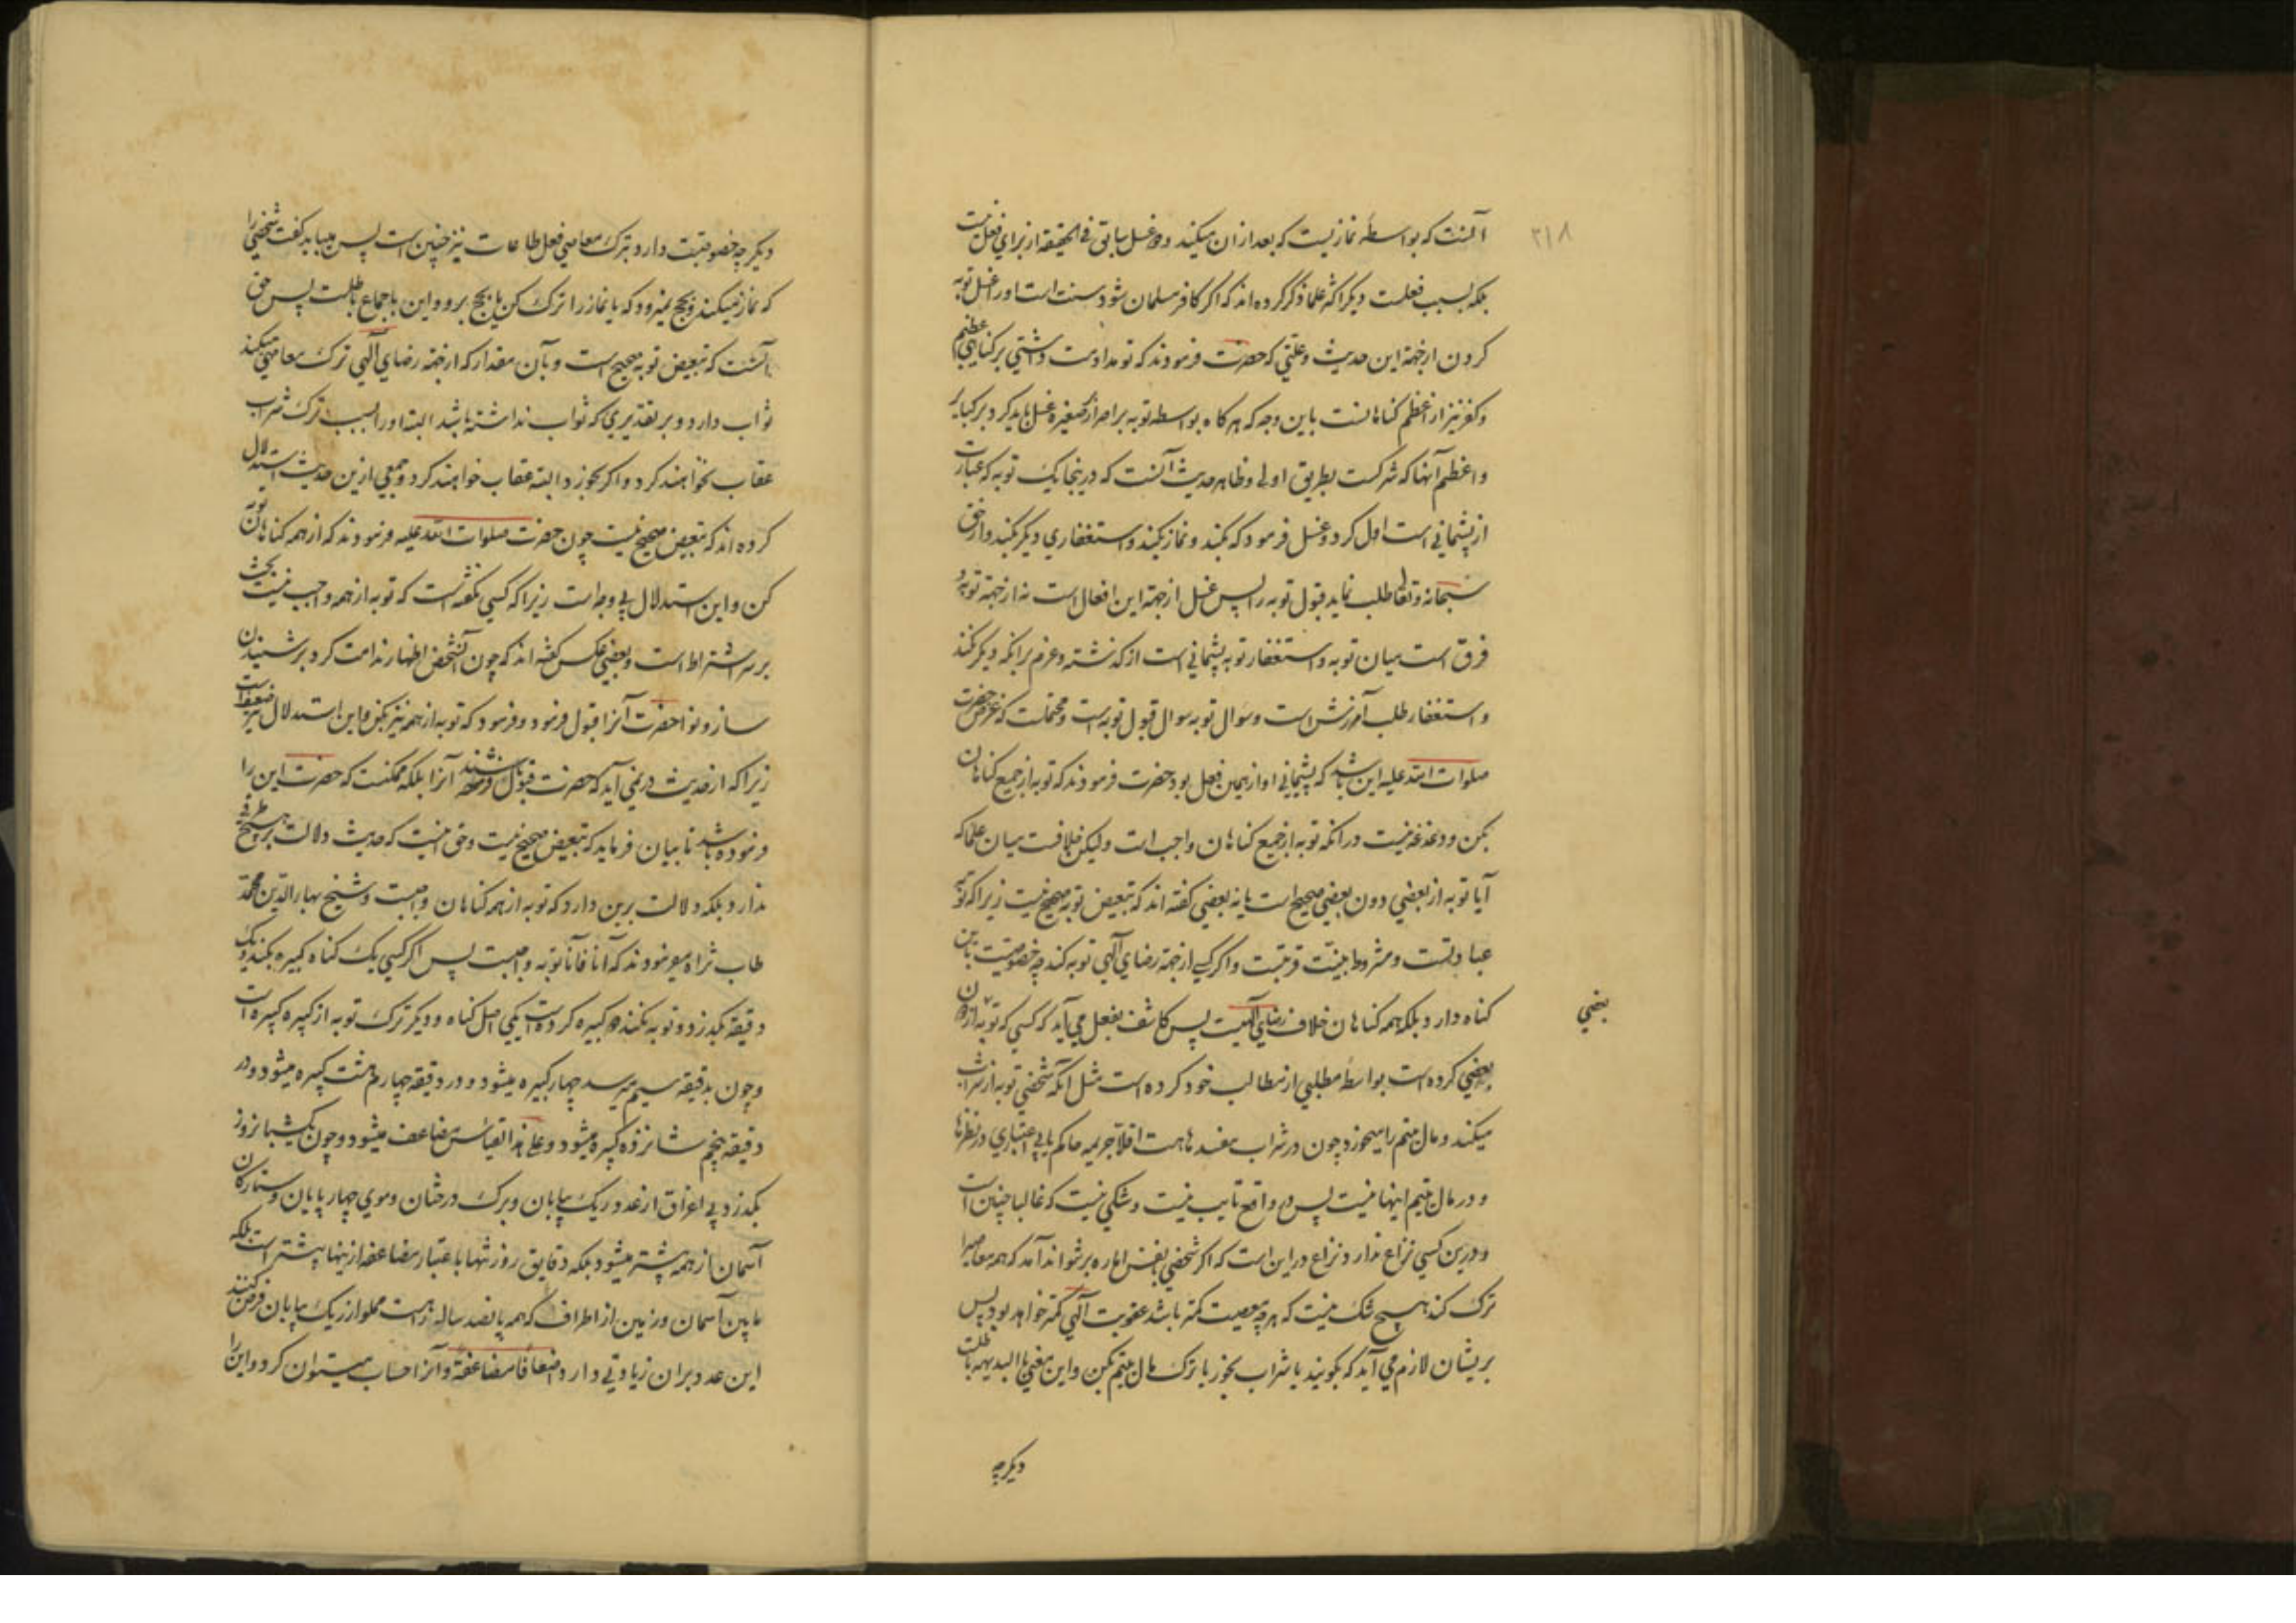 ۲۱۸
آنست که بواسطه نمازیست که بعد ازان میکند و غسل سابق فی الحقیقه از برای فعل نیست
بلکه بسبب فعلست دیگر اکثر علما ذکر کرده اند که اگر کافر مسلمان شود سنت است اورا غسل توبه
کردن ازجهة این حدیث و علتی که حضرت فرمودند که تو مداومت داشتی بر گناهی عظیم
و کفر نیز از اعظم گناهانست باین وجه که هرگاه بواسطه توبه بر اصرار صغیره غسل باید کرد بر کبایر
و اعظم آنها که شرکست بطریق اولی و ظاهر حدیث آنست که درینجا یک توبه که عبارت
از پشیمانی است اول کرد و غسل فرمود که بکند و نماز بکند و استغفاری دیگر بکند و از حق
سبحانه و تعا طلب نماید قبول توبه را پس غسل ازجهة این افعال است نه ازجهة توبه و
فرق است میان توبه و استغفار توبه پشیمانی است از گذشته و عزم برانکه دیگر نکند
و استغفار طلب آمرزش است و سوال توبه سوال قبول توبه است و محتملست که غرض حضرت
صلوات الله علیه این باشد که پشیمانی او از همین فعل بود حضرت فرمودند که توبه از جمیع گناهان
بکن و دغدغه نیست در آنکه توبه از جمیع گناهان واجب است ولیکن خلافست میان علما که
آیا توبه از بعضی دون بعضی صحیح است یا نه بعضی گفته اند که تبعیض توبه صحیح نیست زیرا که توبه
عبادتست و مشروط بنیت قربتست و اگر کسی ازجهة رضای الهی توبه کند چه خصوصیت باین
گناه دارد بلکه همه گناهان خلاف رضای الهیست پس کاشف بفعل می آید که کسی که توبه از
بعضی
بعضی کرده است بواسطه مطلبی از مطالب خود کرده است مثل آنکه شخصی توبه از شراب
میکند و مال یتیم را میخورد چون در شراب مفسدها هست اقلا جریمه حاکم یا بی اعتباری در نظرها
و در مال یتیم اینها نیست پس در واقع تایب نیست و شکی نیست که غالبا چنین است
و درین کسی نزاع ندارد نزاع در این است که اگر شخصی بنفس اماره بر نتواند آمد که همه معاصی را
ترک کند هیچ شک نیست که هرچه معصیت کمتر باشد عقوبت الهی کمتر خواهد بود پس
بریشان لازم می آید که بگویند یا شراب بخور یا ترک مال یتیم بکن و این معنی بالبدیهه باطلست
دیگر چه
دیگر چه خصوصیت دارد بترک معاصی فعل طاعات نیز چنین است پس میباید گفت شخصی را
که نماز میکند و بحج نمیرود که یا نماز را ترک کن یا بحج برو و این باجماع باطلست پس حق
آنست که تبعیض توبه صحیح است و بآن مقدار که ازجهة رضای الهی ترک معاصی میکند
ثواب دارد و بر تقدیری که ثواب نداشته باشد البته اورا بسبب ترک شراب
عقاب نخواهند کرد و اگر بخورد البته عقاب خواهند کرد و جمعی ازین حدیث استدلال
کرده اند که تبعیض صحیح نیست چون حضرت صلوات الله علیه فرمودند که از همه گناهان توبه
کن و این استدلال بی وجه است زیرا که کسی نگفته است که توبه از همه واجب نیست بحث
بر سر اشتراط است و بعضی عکس گفته اند که چون آنشخص اظهار ندامت کرد بر شنیدن
ساز و نوا حضرت آنرا قبول فرمود و فرمود که توبه از همه نیز بکن و این استدلال نیز ضعیف است
زیرا که از حدیث در نمی آید که حضرت قبول فرموده باشند آنرا بلکه ممکنست که حضرت این را
فرموده باشد تا بیان فرماید که تبعیض صحیح نیست و حق اینست که حدیث دلالت بر هیچ طرف
ندارد بلکه دلالت برین دارد که توبه از همه گناهان واجبست و شیخ بهاء الدین محمد
طاب ثراه میفرمودند که آنا فآنا توبه واجبست پس اگر کسی یک گناه کبیره بکند و یک
دقیقه بگذرد و توبه نکند دو کبیره کرده است یکی اصل گناه و دیگر ترک توبه از کبیره کبیره است
و چون بدقیقه سیم میرسد چهار کبیره میشود و در دقیقه چهارم هشت کبیره میشود و در
دقیقه پنجم شانزده کبیره میشود و علی هذا القیاس مضاعف میشود و چون یک شبانروز
بگذرد بی اغراق از عدد ریک بیابان و برک درختان و موی چهارپایان و ستارگان
آسمان از همه بیشتر میشود بلکه دقایق روز تنها باعتبار مضاعفه ازینها بیشتر است بلکه
مابین آسمان و زمین از اطراف که همه پانصد ساله راهست مملو از ریک بیابان فرض کنند
این عدد بران زیادتی دارد اضعافا مضاعفة و آنرا حساب میتوان کرد و این را